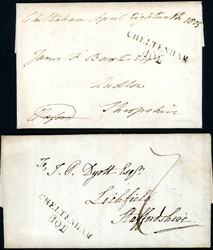 Cheltenham April eighteenth 1805
CHELTENHAM
James F. Esq
Ludlow
Shropshire
F. I. C. Dyott Esqr
Lichfield
Staffordshire
CHELTENHAM